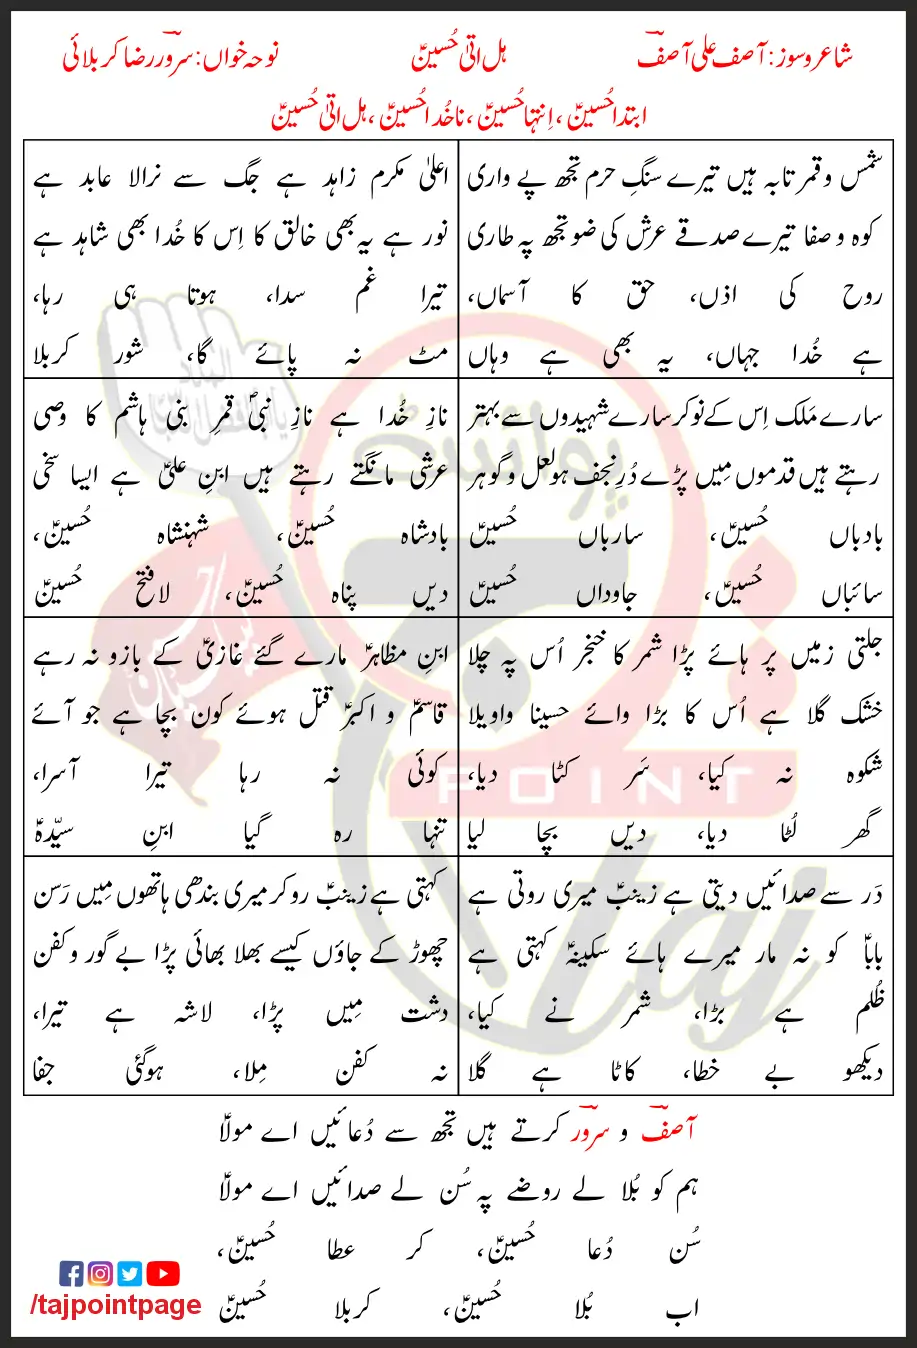 شاعر و سوز: آصف علی آصفؔ
ہل اتیٰ حُسینؑ
نوحہ خواں: سرورؔ رضا کربلائی
ابتدا حُسینؑ، اِنتہا حُسینؑ، ناخُدا حُسینؑ، ہل اتیٰ حُسینؑ
شمس و قمر تابہ ہیں تیرے سنگِ حرم تجھ پے واری
کوہ و صفا تیرے صدقے عرش کی ضو تجھ پہ طاری
روح کی اذں، حق کا آسماں،
ہے خُدا جہاں، یہ بھی ہے وہاں
اعلیٰ مکرم زاہد ہے جگ سے نرالا عابد ہے
نور ہے یہ بھی خالق کا اِس کا خُدا بھی شاہد ہے
تیرا غم سدا، ہوتا ہی رہا،
مٹ نہ پائے گا، شور کربلا
سارے مَلک اِس کے نوکر سارے شہیدوں سے بہتر
رہتے ہیں قدموں مِیں پڑے دُرِ نجف ہو لعل و گوہر
بادباں حُسینؑ، سارباں حُسینؑ
سائباں حُسینؑ، جاوداں حُسینؑ
نازِ خُدا ہے نازِ نبیؐ قمرِ بنی ہاشم کا وصی
عرشی مانگتے رہتے ہیں ابنِ علیؑ ہے ایسا سخی
بادشاہ حُسینؑ، شہنشاہ حُسینؑ،
دیں پناہ حُسینؑ، لافتح حُسینؑ
جلتی زمیں پر ہائے پڑا شمر کا خنجر اُس پہ چلا
خشک گلا ہے اُس کا بڑا وائے حسینا واویلا
شکوہ نہ کیا، سَر کٹا دیا،
گھر لُٹا دیا، دیں بچا لیا
ابنِ مظاہرؑ مارے گئے غازیؑ کے بازو نہ رہے
قاسمؑ و اکبرؑ قتل ہوئے کون بچا ہے جو آئے
کوئی نہ رہا تیرا آسرا،
تنہا رہ گیا ابنِ سیّدہؑ
دَر سے صدائیں دیتی ہے زینبؑ میری روتی ہے
باباؑ کو نہ مار میرے ہائے سکینہؑ کہتی ہے
ظُلم ہے بڑا، شمر نے کیا،
دیکھو بے خطا، کاٹا ہے گلا
کہتی ہے زینبؑ رو کر میری بندھی ہاتھوں مِیں رَسن
چھوڑ کے جاؤں کیسے بھلا بھائی پڑا بے گور و کفن
دشت مِیں پڑا، لاشہ ہے تیرا،
نہ کفن مِلا، ہوگئی جفا
آصفؔ و سرورؔ کرتے ہیں تجھ سے دُعائیں اے مولاؑ
ہم کو بُلا لے روضے پہ سُن لے صدائیں اے مولاؑ
سُن دُعا حُسینؑ، کر عطا حُسینؑ،
اب بُلا حُسینؑ، کربلا حُسینؑ
/tajpointpage
پوائنٹ
POINT
taj